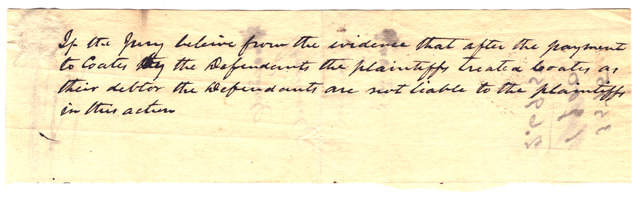 If the Jury beleive from the evidence that after the payment
to Coates by the Defendants the plaintiffs treated Coates as
their debtor the Defendants are not liable to the plaintiffs
in this action